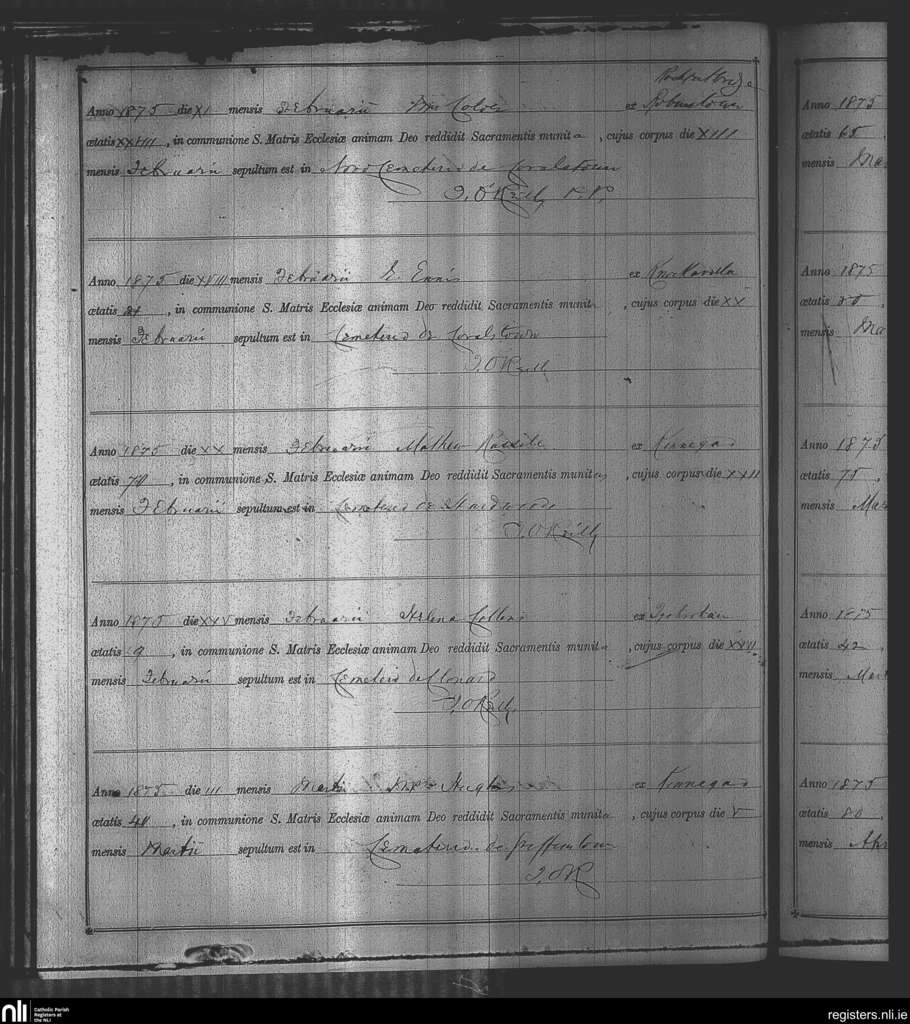 Anno 1875 die XI mensis Februarii ex Robinstown
ætatis XXVIII, in communione S. Matris Ecclesiæ animam Deo reddidit Sacramentis munita, cujus corpus die XIII
mensis Februarii sepultum est in Novo Cemeterio de Coralstown
J. O'Reilly P.P.
Anno 1875 die XVIII mensis Februarii E. Ennis ex
ætatis 21, in communione S. Matris Ecclesiæ animam Deo reddidit Sacramentis munit, cujus corpus die XX
mensis Februarii sepultum est in Cemeterio de Coralstown
J. O'Reilly
Anno 1875 die XX mensis Februarii Mathew ex Kinnegad
ætatis 70, in communione S. Matris Ecclesiæ animam Deo reddidit Sacramentis munitus, cujus corpus die XXII
mensis Februarii sepultum est in Cemeterio de Hardwood
J. O'Reilly
Anno 1875 die XXV mensis Februarii Helena ex
ætatis 9, in communione S. Matris Ecclesiæ animam Deo reddidit Sacramentis munita, cujus corpus die XXVI
mensis Februarii sepultum est in Cemeterio de Clonard
J. O'Reilly
Anno 1875 die III mensis Martii ex Kinnegad
ætatis 40, in communione S. Matris Ecclesiæ animam Deo reddidit Sacramentis munita, cujus corpus die V
mensis Martii sepultum est in Cemeterio de
J. OR
Anno 1875
ætatis 65,
mensis Ma
Anno 1875
ætatis
mensis Ma
Anno 1875
ætatis 75,
mensis Mar
Anno 1875
ætatis 42,
mensis Mar
Anno 1875
ætatis 80,
mensis Apr
nli Catholic Parish
Registers at
the NLI
registers.nli.ie